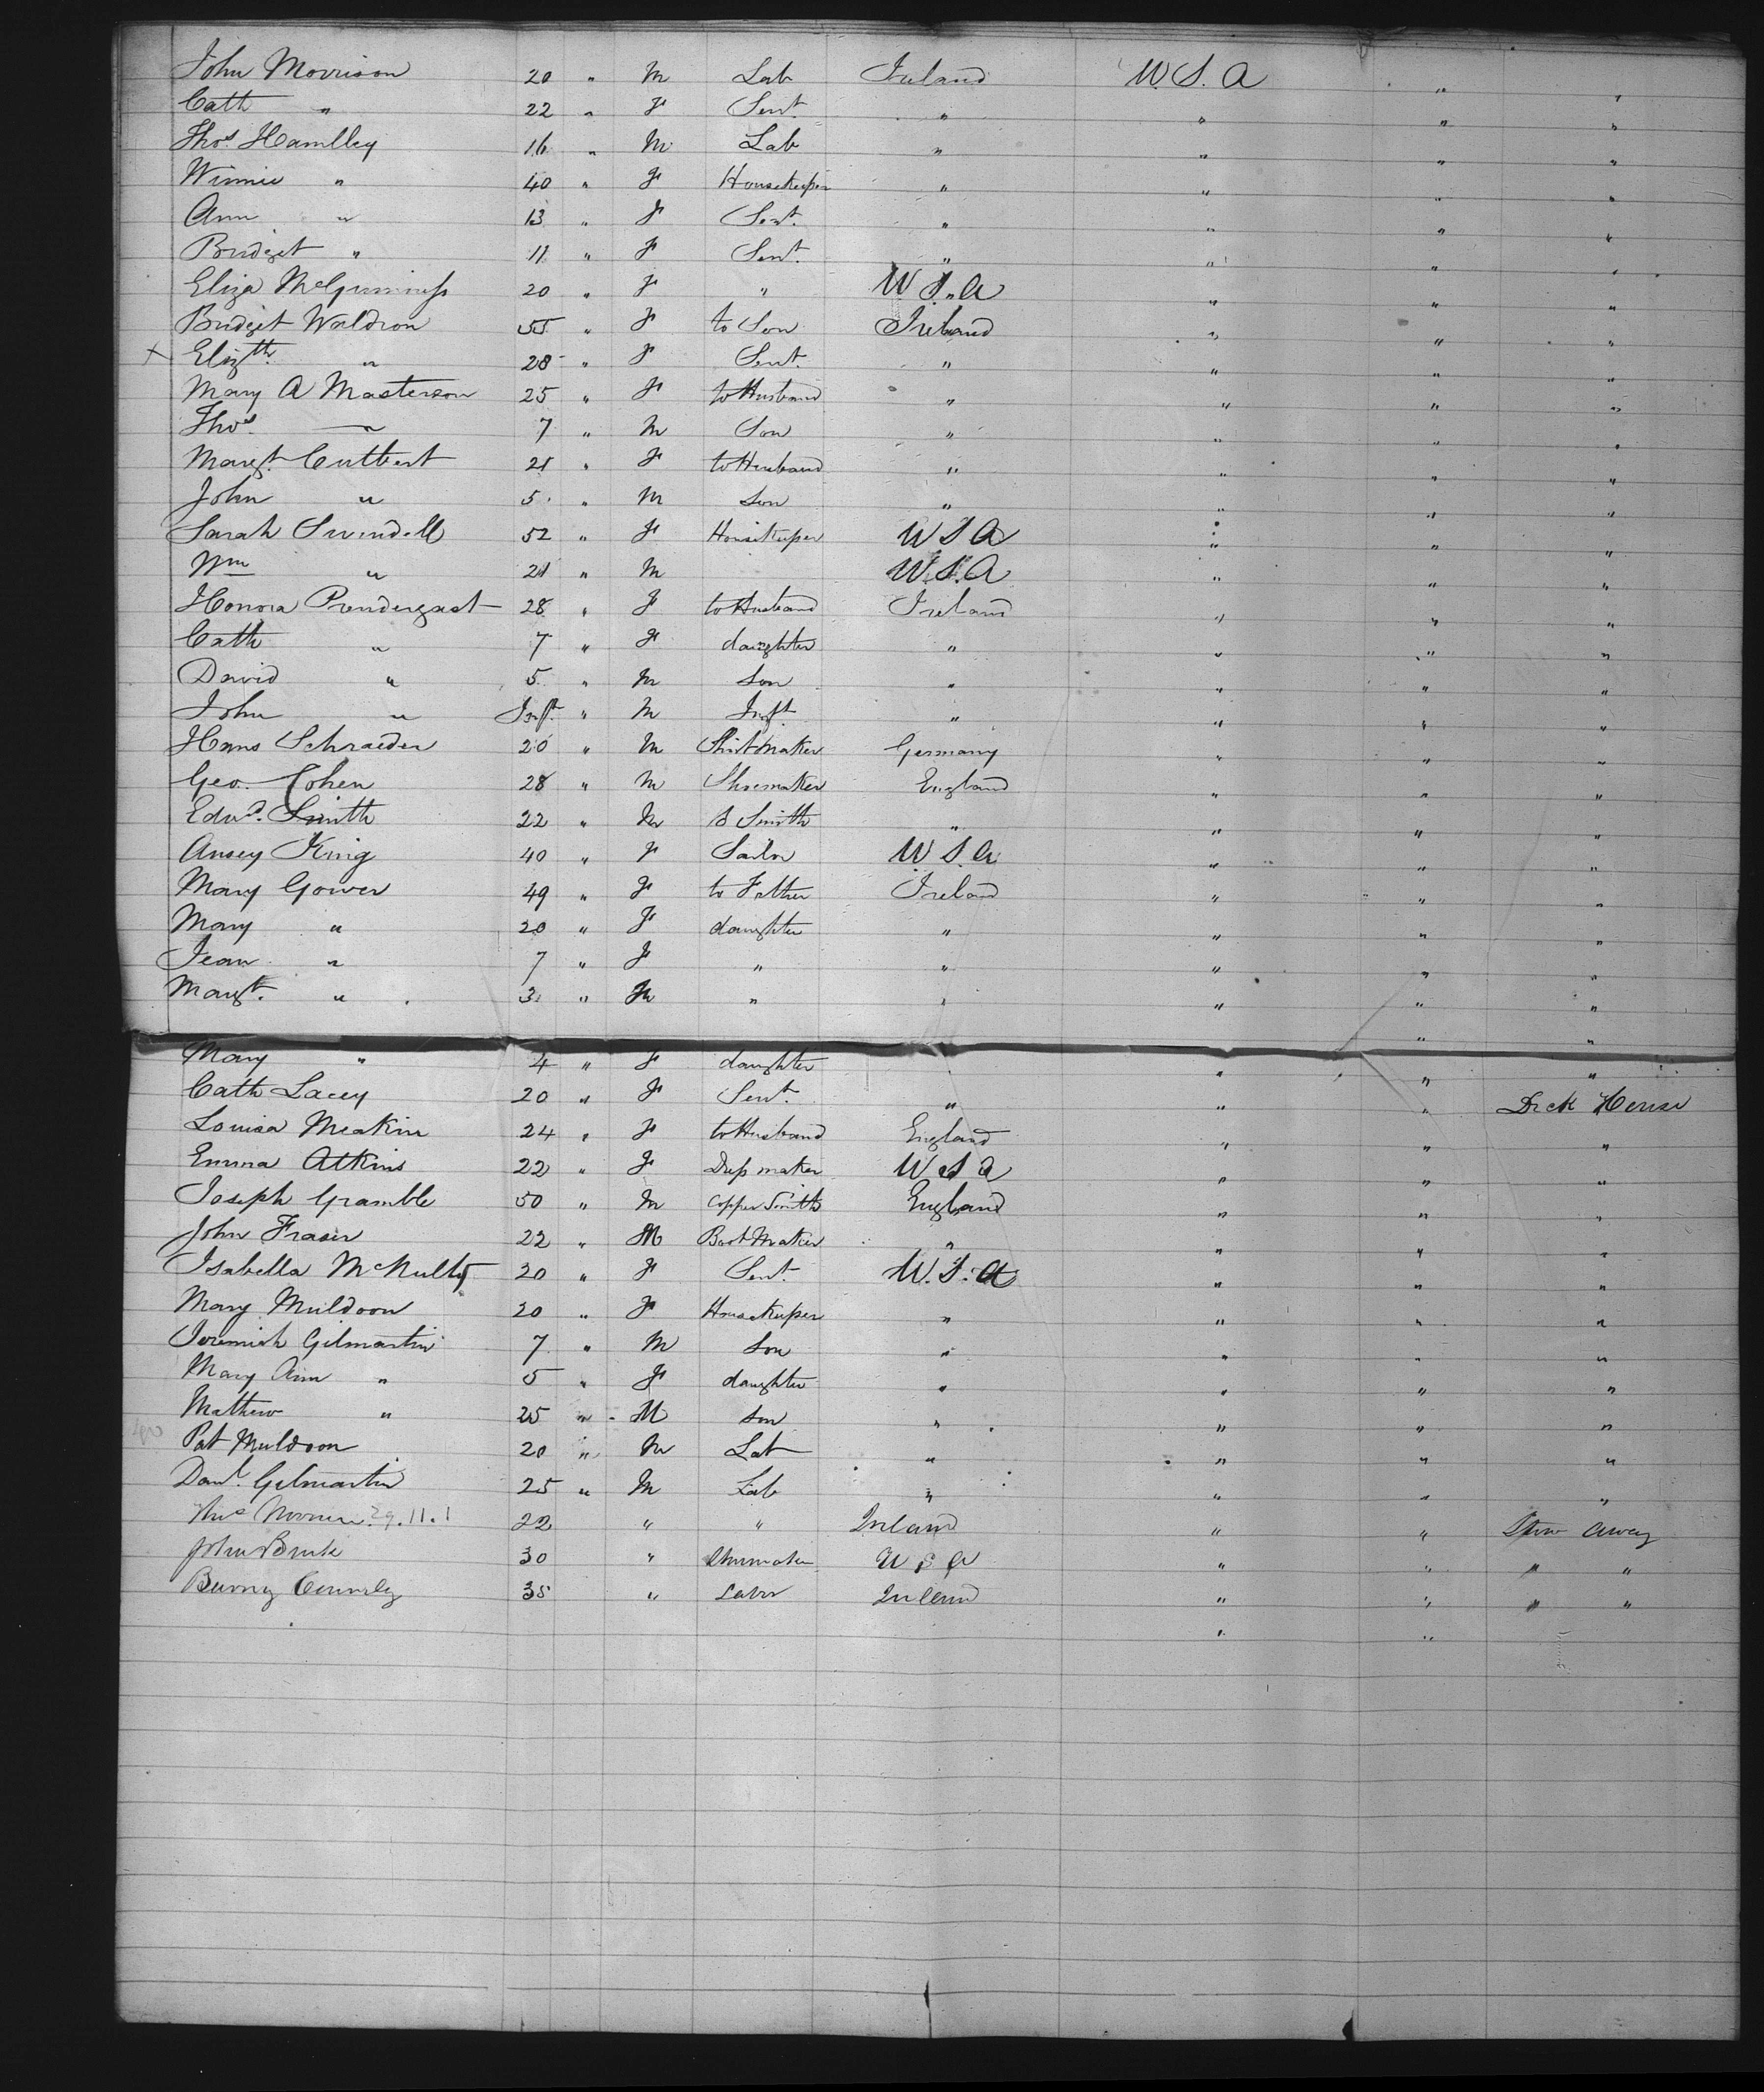 John Morrison 20 " M Lab Ireland U.S.A " "
Cath " 22 " F Servt. " " " "
Thos. Hamlley 16 " M Lab " " " "
Winnie " 40 " F Housekeeper " " " "
Ann " 13 " F Servt. " " " "
Bridget " 11 " F Servt. " " " "
Eliza McGuinness 20 " F " U.S.A " " "
Bridget Waldron 55 " F to Son Ireland " " "
+ Elizth. " 28 " F Servt. " " " "
Mary A Masterson 25 " F to Husband " " " "
Thos. " 7 " M Son " " " "
Margt. Cutbert 21 " F to Husband " " " "
John " 5 " M Son " " " "
Sarah Swindell 52 " F Housekeeper U S A " " "
Wm " 21 " M U.S.A " " "
Honora Prendergast 28 " F to Husband Ireland " " "
Cath " 7 " F daughter " " " "
David " 5 " M Son " " " "
John " Inft. " M Inft " " " "
Hans Schraeder 20 " M Shirtmaker Germany " " "
Geo. Cohen 28 " M Shoemaker England " " "
Edwd. Smith 22 " M B Smith " " " "
Ansey King 40 " F Sailor U.S.A " " "
Mary Gower 49 " F to Father Ireland " " "
Mary " 20 " F daughter " " " "
Jean " 7 " F " " " " "
Margt. " 3 " " " " " "
" "
Mary " 4 " F daughter " " "
Cath Lacey 20 " F Servt. " " " Deck House
Louisa Meakin 24 " F to Husband England " " "
Emma Atkins 22 " F Dressmaker U S A " " "
Joseph Gramble 50 " M Copper Smith England " " "
John Fraser 22 " M Boot Maker " " " "
Isabella McNulty 20 " F Servt. U.S.A " " "
Mary Muldoon 20 " F Housekeeper " " " "
Jeremiah Gilmartin 7 " M Son " " " "
Mary Ann " 5 " F daughter " " " "
Mathew " 25 " M Son " " " "
Pat Muldoon 20 " M Lab " " " "
Danl. Gilmartin 25 " M Lab " " " "
29.11.1 22 " " Ireland " " Stow Away
John 30 " Shoemaker U S A " " " "
Barney 35 " Labor Ireland " " " "
" "